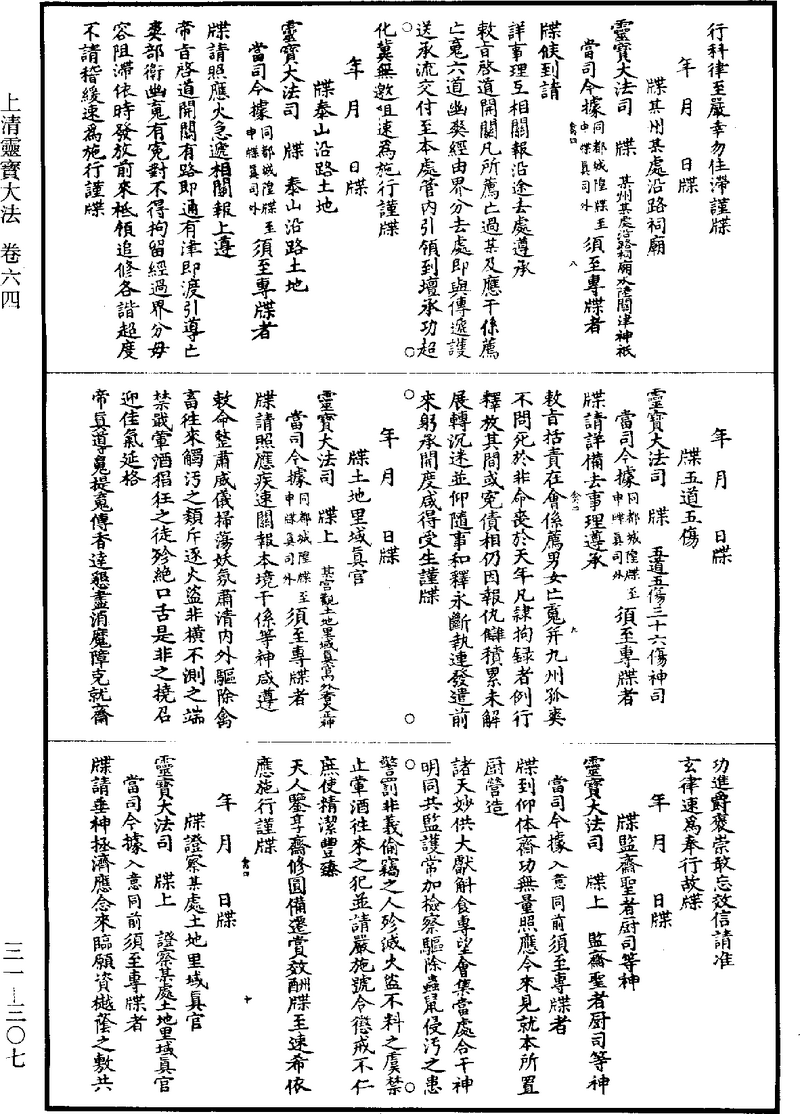 上清靈寶大法 卷六四
三一—三〇七
行科律至嚴幸勿住滯謹牒
年 月 日牒
牒某州某處沿路祠廟
靈寶大法司 牒 某州某處沿路祠廟水陸關津神祇
當司今據同都城隍牒至申牒眞司外須至專牒者
牒候到請
詳事理互相關報沿途去處遵承
敕旨啓道開關凡所薦亡過某及應干係薦
亡䰟六道幽爽經由界分去處即與傳遞護
送承流交付至本處管內引領到壇承功超
化冀無邀咀速爲施行謹牒
年 月 日牒
牒泰山沿路土地
靈寶大法司 牒 泰山沿路土地
當司今據同都城隍牒至申牒眞司外須至專牒者
牒請照應火急遞相關報上遵
帝旨啓道開關有路即通有津即渡引導亡
爽部衛幽䰟有寃對不得拘留經過界分毋
容阻滯依時發放前來祗領追修各諧超度
不請稽緩速爲施行謹牒
年 月 日牒
牒五道五傷
靈寶大法司 牒 五道五傷三十六傷神司
當司今據同都城隍牒至申牒眞司外須至專牒者
牒請詳備去事理遵承
敕旨括責在會係薦男女亡䰟并九州孤爽
不問死於非命喪於天年凡隸拘錄者例行
釋放其間或寃債相仍因報仇讎積累未解
展轉沉迷並仰隨事和釋永斷執連發遣前
來躬承開度咸得受生謹牒
年 月 日牒
牒土地里域眞官
靈寶大法司 牒上 某宮觀土地里域眞官
當司今據同都城隍牒至申牒眞司外須至專牒者
牒請照應疾速關報本境干係等神咸遵
敕命整肅威儀掃蕩妖氛肅清內外驅除禽
畜往來觸污之類斥逐火盜非橫不測之端
禁戢葷酒猖狂之徒殄絕口舌是非之撓召
迎佳氣延格
帝眞導䰟提䰟傳香達懇盡消魔障克就齋
功進爵褒崇敢忘效信請准
玄律速爲奉行故牒
年 月 日牒
牒監齋聖者厨司等神
靈寶大法司 牒上 監齋聖者厨司等神
當司今據入意同前須至專牒者
牒到仰体齋功無量照應今來見就本所置
厨營造
諸天妙供大獻斛食專望會集當處合干神
明同共監護常加檢察驅除蟲鼠侵污之患
警罰非義偷竊之人殄滅火盜不料之虞禁
止葷酒往來之犯並請嚴施號令懲戒不仁
庶使精潔豐臻
天人鑒享齋修圓備遷賞效酬牒至速希依
應施行謹牒
年 月 日牒
牒證察某處土地里域眞官
靈寶大法司 牒上 證察某處土地里域眞官
當司今據入意同前須至專牒者
牒請垂神拯濟應念來臨願資樾蔭之敷共